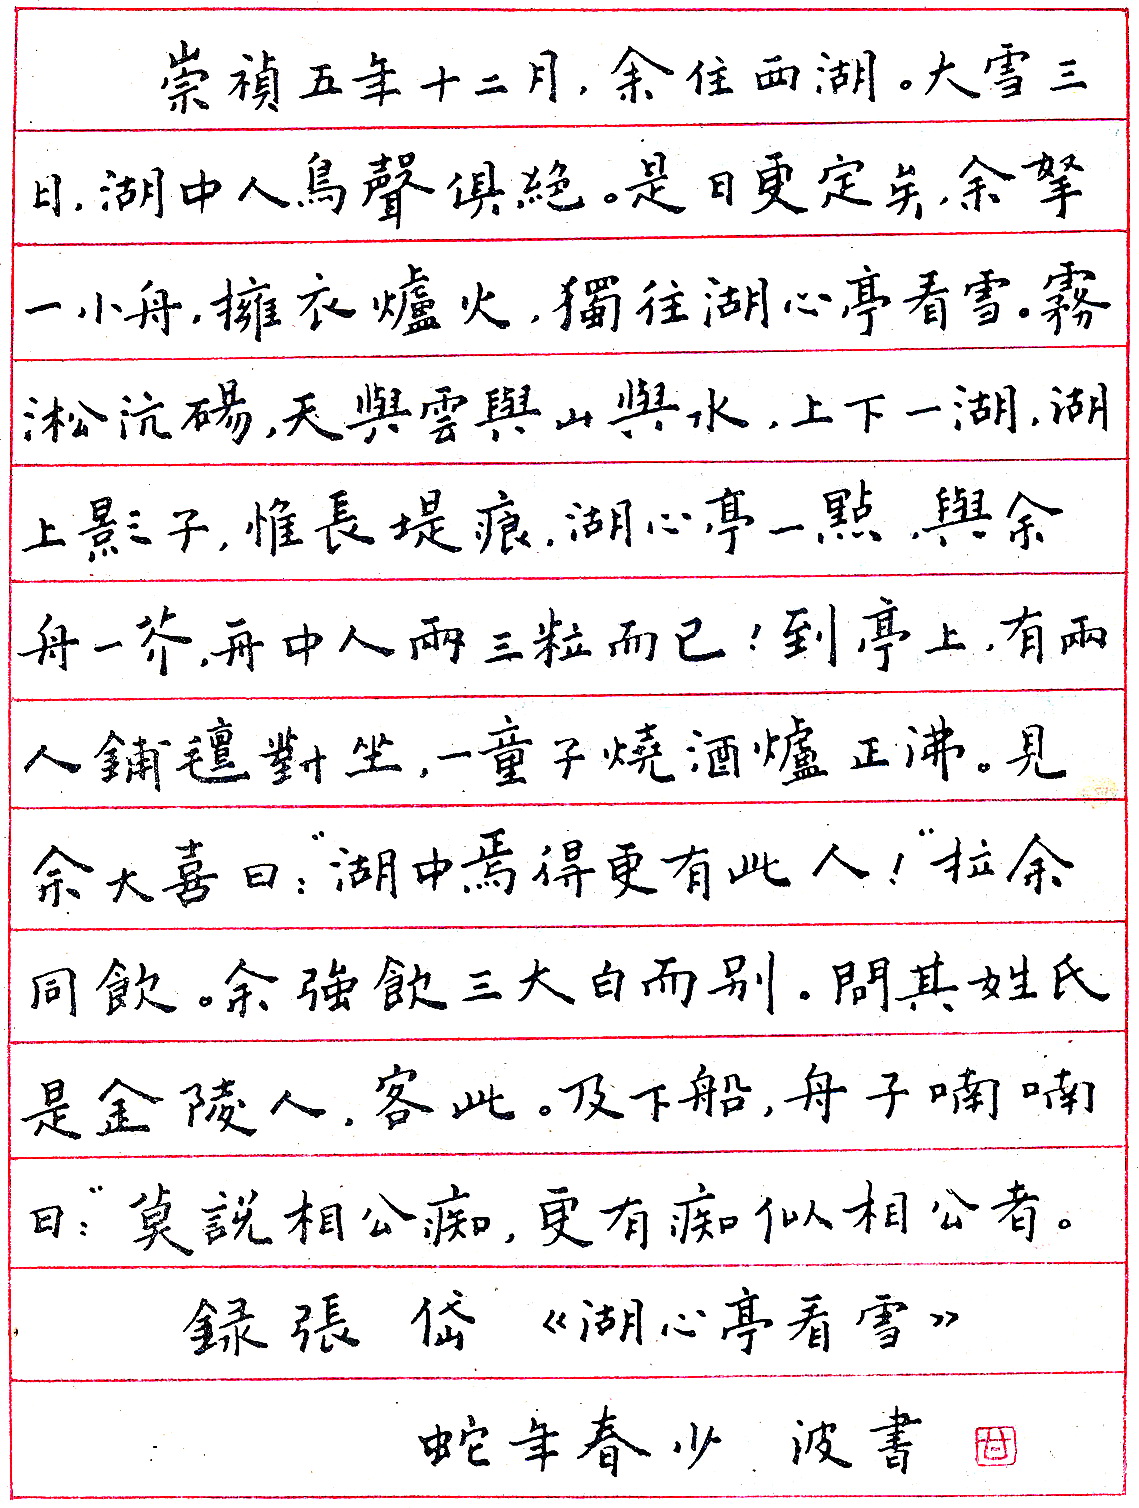 崇禎五年十二月，余住西湖。大雪三
日，湖中人鳥聲俱絕。是日更定矣，余拏
一小舟，擁衣爐火，獨往湖心亭看雪。霧
淞沆碭，天與雲與山與水，上下一湖，湖
上影子，惟長堤痕，湖心亭一點，與余
舟一芥，舟中人兩三粒而已！到亭上，有兩
人鋪氈對坐，一童子燒酒爐正沸。見
余大喜曰：“湖中焉得更有此人！”拉余
同飲。余強飲三大白而别。問其姓氏
是金陵人，客此。及下船，舟子喃喃
曰：“莫説相公痴，更有痴似相公者。
録張岱《湖心亭看雪》
蛇年春少波書
甘